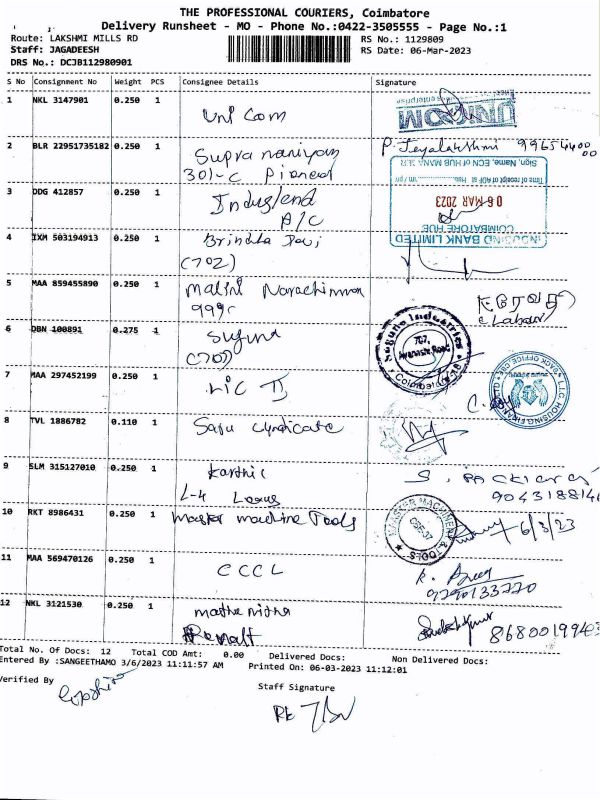 THE PROFESSIONAL COURIERS, Coimbatore
Delivery Runsheet - MO - Phone No.:0422-3505555 - Page No.:1
Route: LAKSHMI MILLS RD
RS No.: 1129809
Staff: JAGADEESH
RS Date: 06-Mar-2023
DRS No.: DCJB112980901
S No Consignment No Weight PCS Consignee Details Signature
1 NKL 3147901 0.250 1 Uni Com
UNICOM
2 BLR 22951735182 0.250 1
P. Jeyalakshmi 9965440000
301-C Pioneer
Sign, Name, ECN of HUB MANAGER
3 DDG 412857 0.250 1 Indus/end
A/C
06 MAR 2023
COIMBATORE HUB
INDUSIND BANK LIMITED
4 IXM 503194913 0.250 1 Brindha Devi
(702)
5 MAA 859455890 0.250 1 Malini
999c
6 DBN 100891 0.275 1 Suguna
(702)
Suguna Industries
707,
Avanashi Road
Coimbatore-18
7 MAA 297452199 0.250 1 LIC II
L.I.C. HOUSING FINANCE LTD
BACK OFFICE CBE
8 TVL 1886782 0.110 1 Saru Cyndicate
9 SLM 315127010 0.250 1 Karthic
L-4 Lexus
10 RKT 8986431 0.250 1 Master machine Tools
MASTER MACHINERY & TOOLS
CBE-37
6/3/23
11 MAA 569470126 0.250 1 C C C L
9290133220
12 NKL 3121530 0.250 1
Renalt
Total No. Of Docs: 12 Total COD Amt: 0.00 Delivered Docs: Non Delivered Docs:
Entered By :SANGEETHAMO 3/6/2023 11:11:57 AM Printed On: 06-03-2023 11:12:01
Verified By
Staff Signature